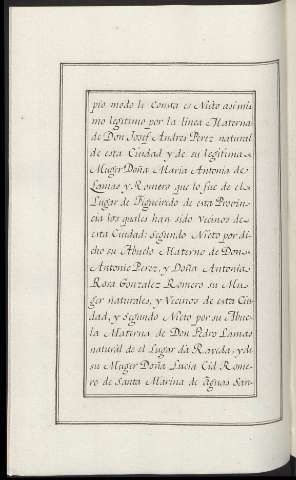 pio modo le consta es Nieto asimis
mo legitimo por la linea Materna
de Don Josef Andres Perez natural
de esta Ciudad y de su legitima
Muger Doña Maria Antonia de
Lamas y Romero que lo fue de el
Lugar de Figueiredo de esta Provin-
cia los quales han sido Vecinos de
esta Ciudad: Segundo Nieto por di-
cho su Abuelo Materno de Don
Antonio Perez, y Doña Antonia
Rosa Gonzalez Romero su Mu-
ger naturales, y Vecinos de esta Ciu-
dad, y Segundo Nieto por su Abue-
la Materna de Don Pedro Lamas
natural de el Lugar da Raveda, y de
su Muger Doña Lucia Cid Rome-
ro de Santa Marina de Aguas San-